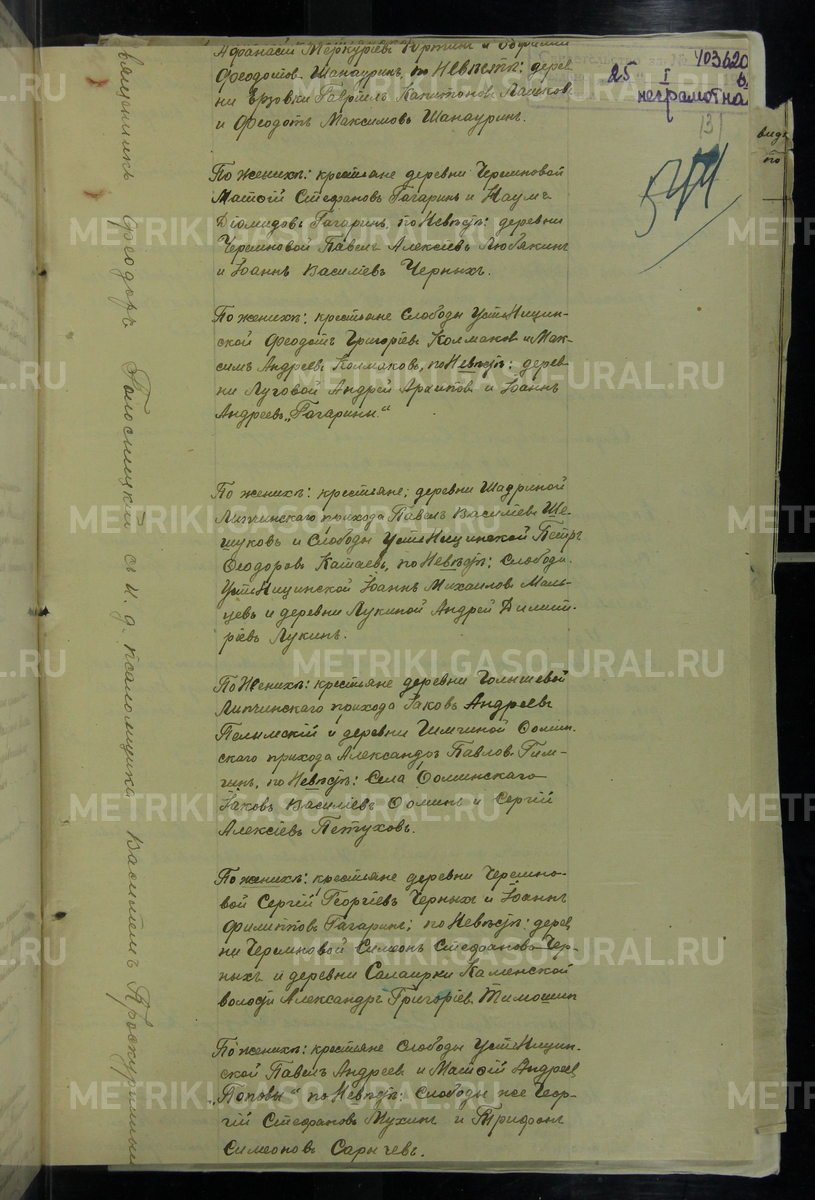 Афанасiй Меркурiевъ
Ѳеодотовъ Шанауринъ, по Невѣстѣ: дерев
ни Ерзовки Гаврiилъ Капитоновъ
и Ѳеодотъ Максимовъ Шанауринъ.
403620
25 I
неграмотна
131
544
По женихѣ: крестьяне деревни Черемновой
Матѳiй Стефановъ Гагаринъ и Наумъ
Дiомидовъ Гагаринъ, по Невѣстѣ: деревни
Черемновой Павелъ Алексiевъ Любякинъ
и Iоаннъ Василiевъ Черныхъ.
По женихѣ: крестьяне Слободы Усть Ницин-
ской Ѳеодотъ Григорiевъ Колмаковъ и Мак-
симъ Андреевъ Колмаковъ, по Невѣстѣ: дерев
ни Луговой Андрей Архиповъ и Iоаннъ
Андреевъ „Гагарины“
По женихѣ: крестьяне, деревни Шадриной
Липчинскаго прихода Павелъ Василiевъ Ше-
шуковъ и Слободы Усть Ницинской Петръ
Ѳеодоровъ Катаевъ, по Невѣстѣ: Слободы
Усть Ницинской Iоаннъ Михаиловъ Маль-
цевъ и деревни Лукиной Андрей Димит-
рiевъ Лукинъ.
По Женихѣ: крестьяне деревни Голышевой
Липчинскаго прихода Iаковъ Андреевъ
Пелымскiй и деревни Ѳомин-
скаго прихода Александръ Павловъ
по Невѣстѣ: Села Ѳоминскаго
Iаковъ Василiевъ Ѳоминъ и Сергiй
Алексiевъ Петуховъ.
По женихѣ: крестьяне деревни Черемно-
вой Сергiй Георгiевъ Черныхъ и Iоаннъ
Филипповъ Гагаринъ; по Невѣстѣ: дерев
ни Черемновой Симеонъ Стефановъ Чер-
ныхъ и деревни Салаирки Каменской
волости Александръ Григорiевъ Тимошин
По женихѣ: крестьяне Слободы Усть Ницин-
ской Павелъ Андреев и Матѳiй Андреев
„Поповы“ по Невѣстѣ: Слободы же Геор-
гiй Стефановъ Мухинъ и Трифонъ
Симеоновъ Сарычевъ.
вященникъ Ѳеодоръ Голосницкiй съ и. д. псаломщика Василiемъ
METRIKI.GASO-URAL.RU